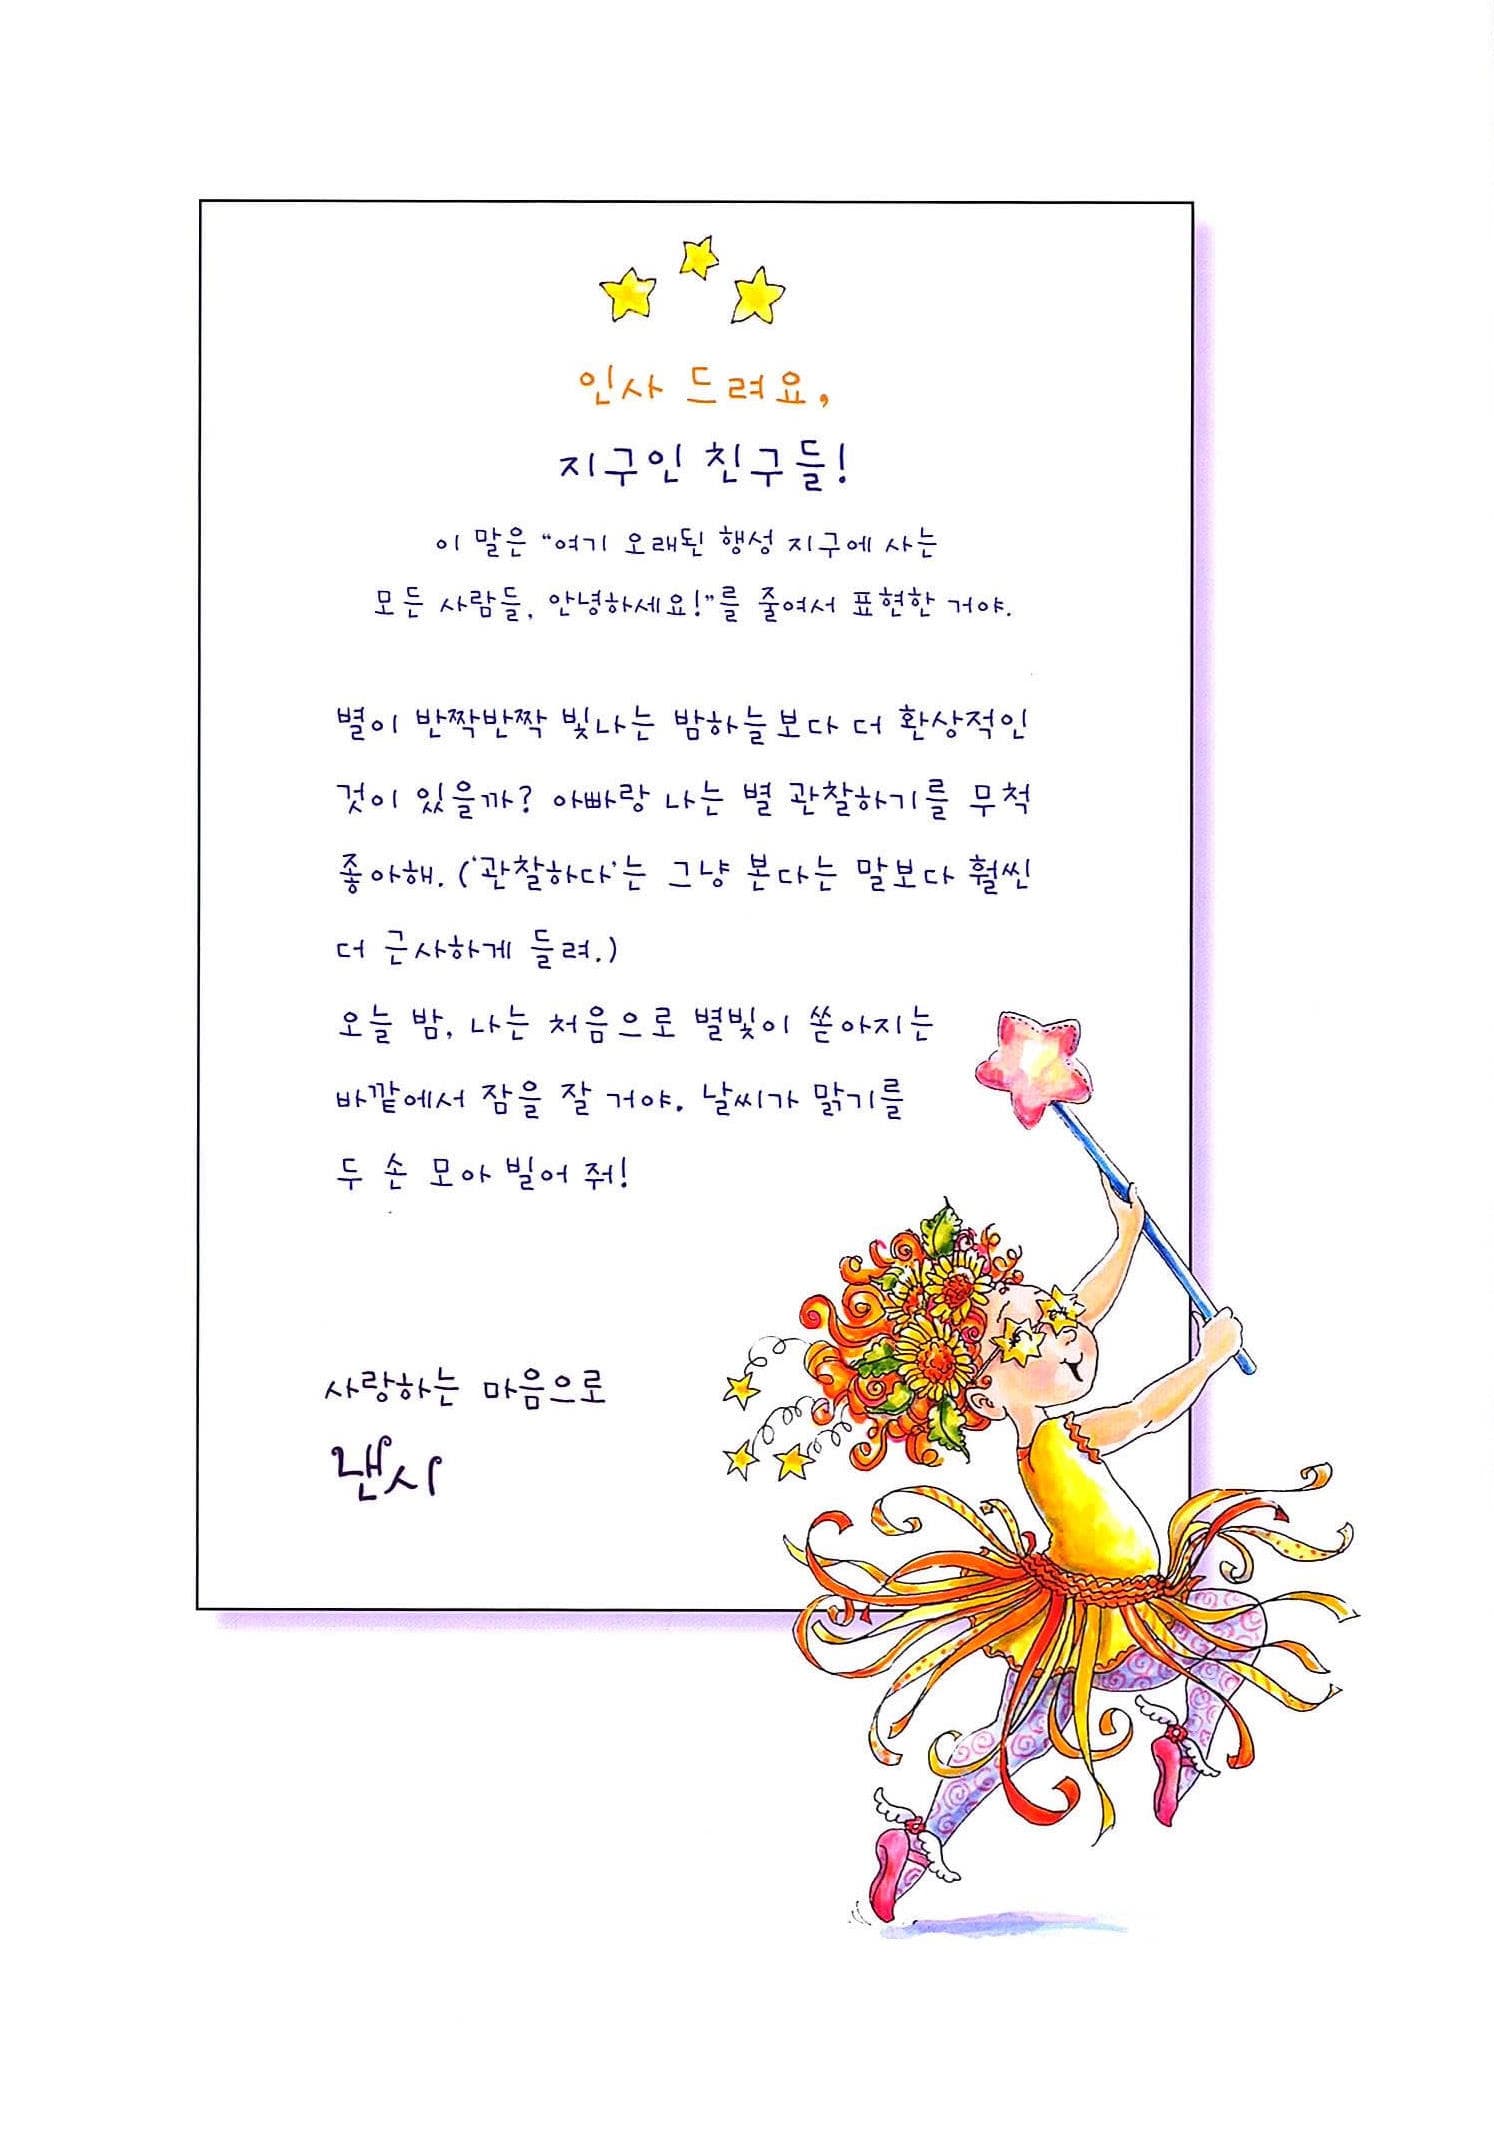 인사 드려요,
지구인 친구들!
이 말은 “여기 오래된 행성 지구에 사는
모든 사람들, 안녕하세요!”를 줄여서 표현한 거야.
별이 반짝반짝 빛나는 밤하늘보다 더 환상적인
것이 있을까? 아빠랑 나는 별 관찰하기를 무척
좋아해. (‘관찰하다’는 그냥 본다는 말보다 훨씬
더 근사하게 들려.)
오늘 밤, 나는 처음으로 별빛이 쏟아지는
바깥에서 잠을 잘 거야. 날씨가 맑기를
두 손 모아 빌어 줘!
사랑하는 마음으로
낸시